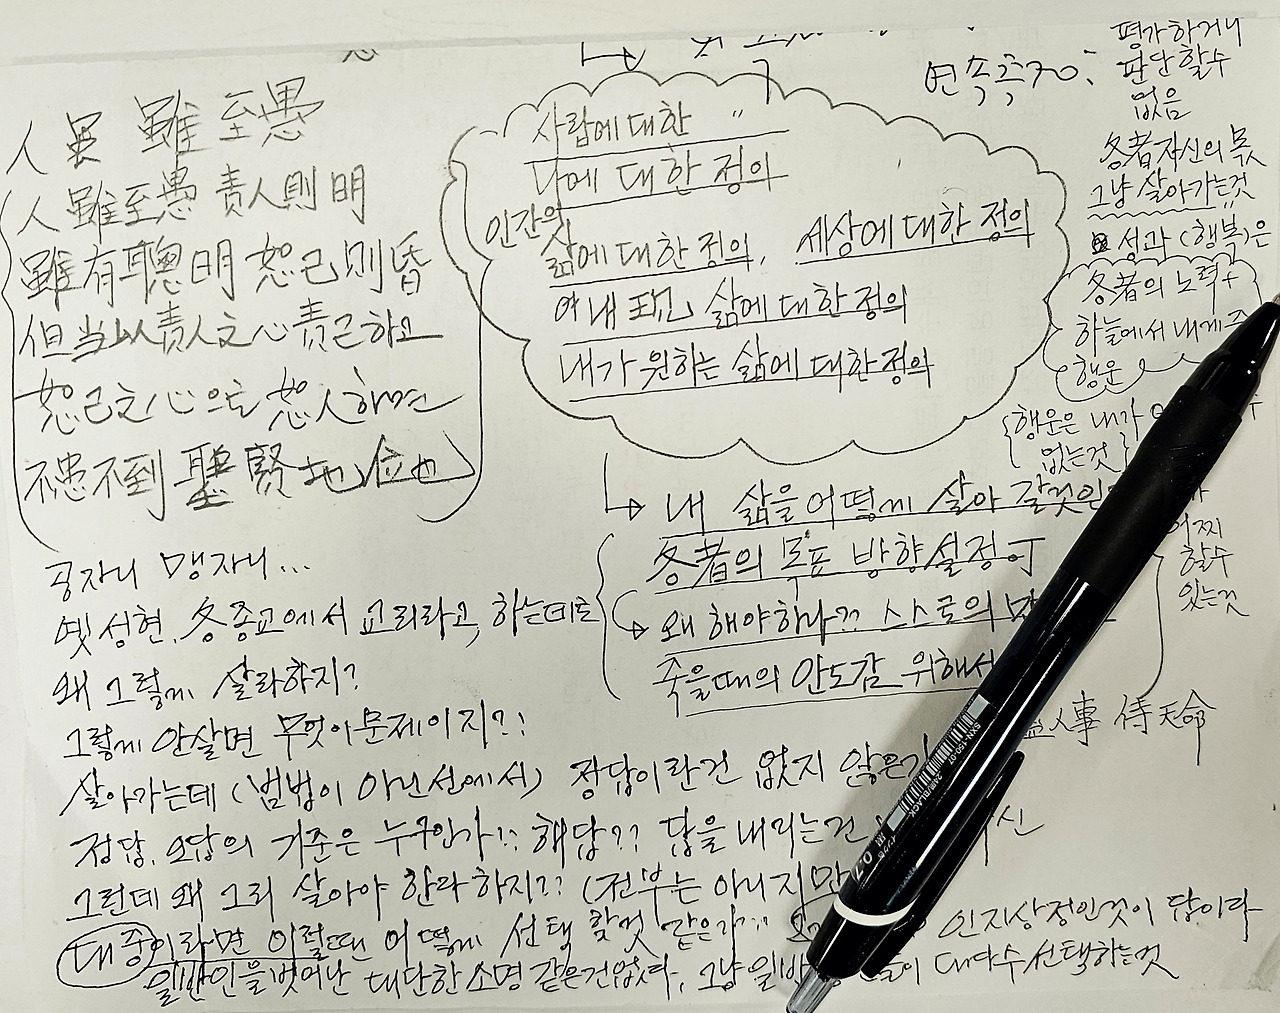 人 雖 至愚
人雖至愚 責人則明
雖有聰明 恕己則昏
但当以責人之心 責己하고
恕己之心으로 恕人하면
不患不到 聖賢地位也
사람에 대한 〃
나에 대한 정의
인간의
삶에 대한 정의, 세상에 대한 정의
내 삶에 대한 정의
내가 원하는 삶에 대한 정의
내 삶을 어떻게 살아 갈것인
各者의 목표 방향설정
왜 해야하나?? 스스로의
죽을때의 안도감 위해서
평가하거나
판단할수
없음
各者자신의 몫
그냥 살아가는것
성과 (행복)은
各者의 노력 +
하늘에서 내게
행운
행운은 내가
없는것
어찌
할수
있는것
人事 待天命
공자니 맹자니...
옛 성현, 各종교에서 교리라고, 하는데로
왜 그렇게 살라하지?
그렇게 안살면 무엇이 문제이지?!
살아가는데 (범법이 아닌선에서) 정답이란건 없지 않은가
정답, 오답의 기준은 누구인가?! 해답?? 답을 내리는건
그런데 왜 그리 살아야 한다 하지?? (전부는 아니지만
대중이라면 이럴땐 어떻게 선택 할것 같은가?? 인지상정인것이 답이다
일반인을 벗어난 대단한 소명 같은건없다, 그냥 일반 들이 대다수 선택하는것
SXN-150-07